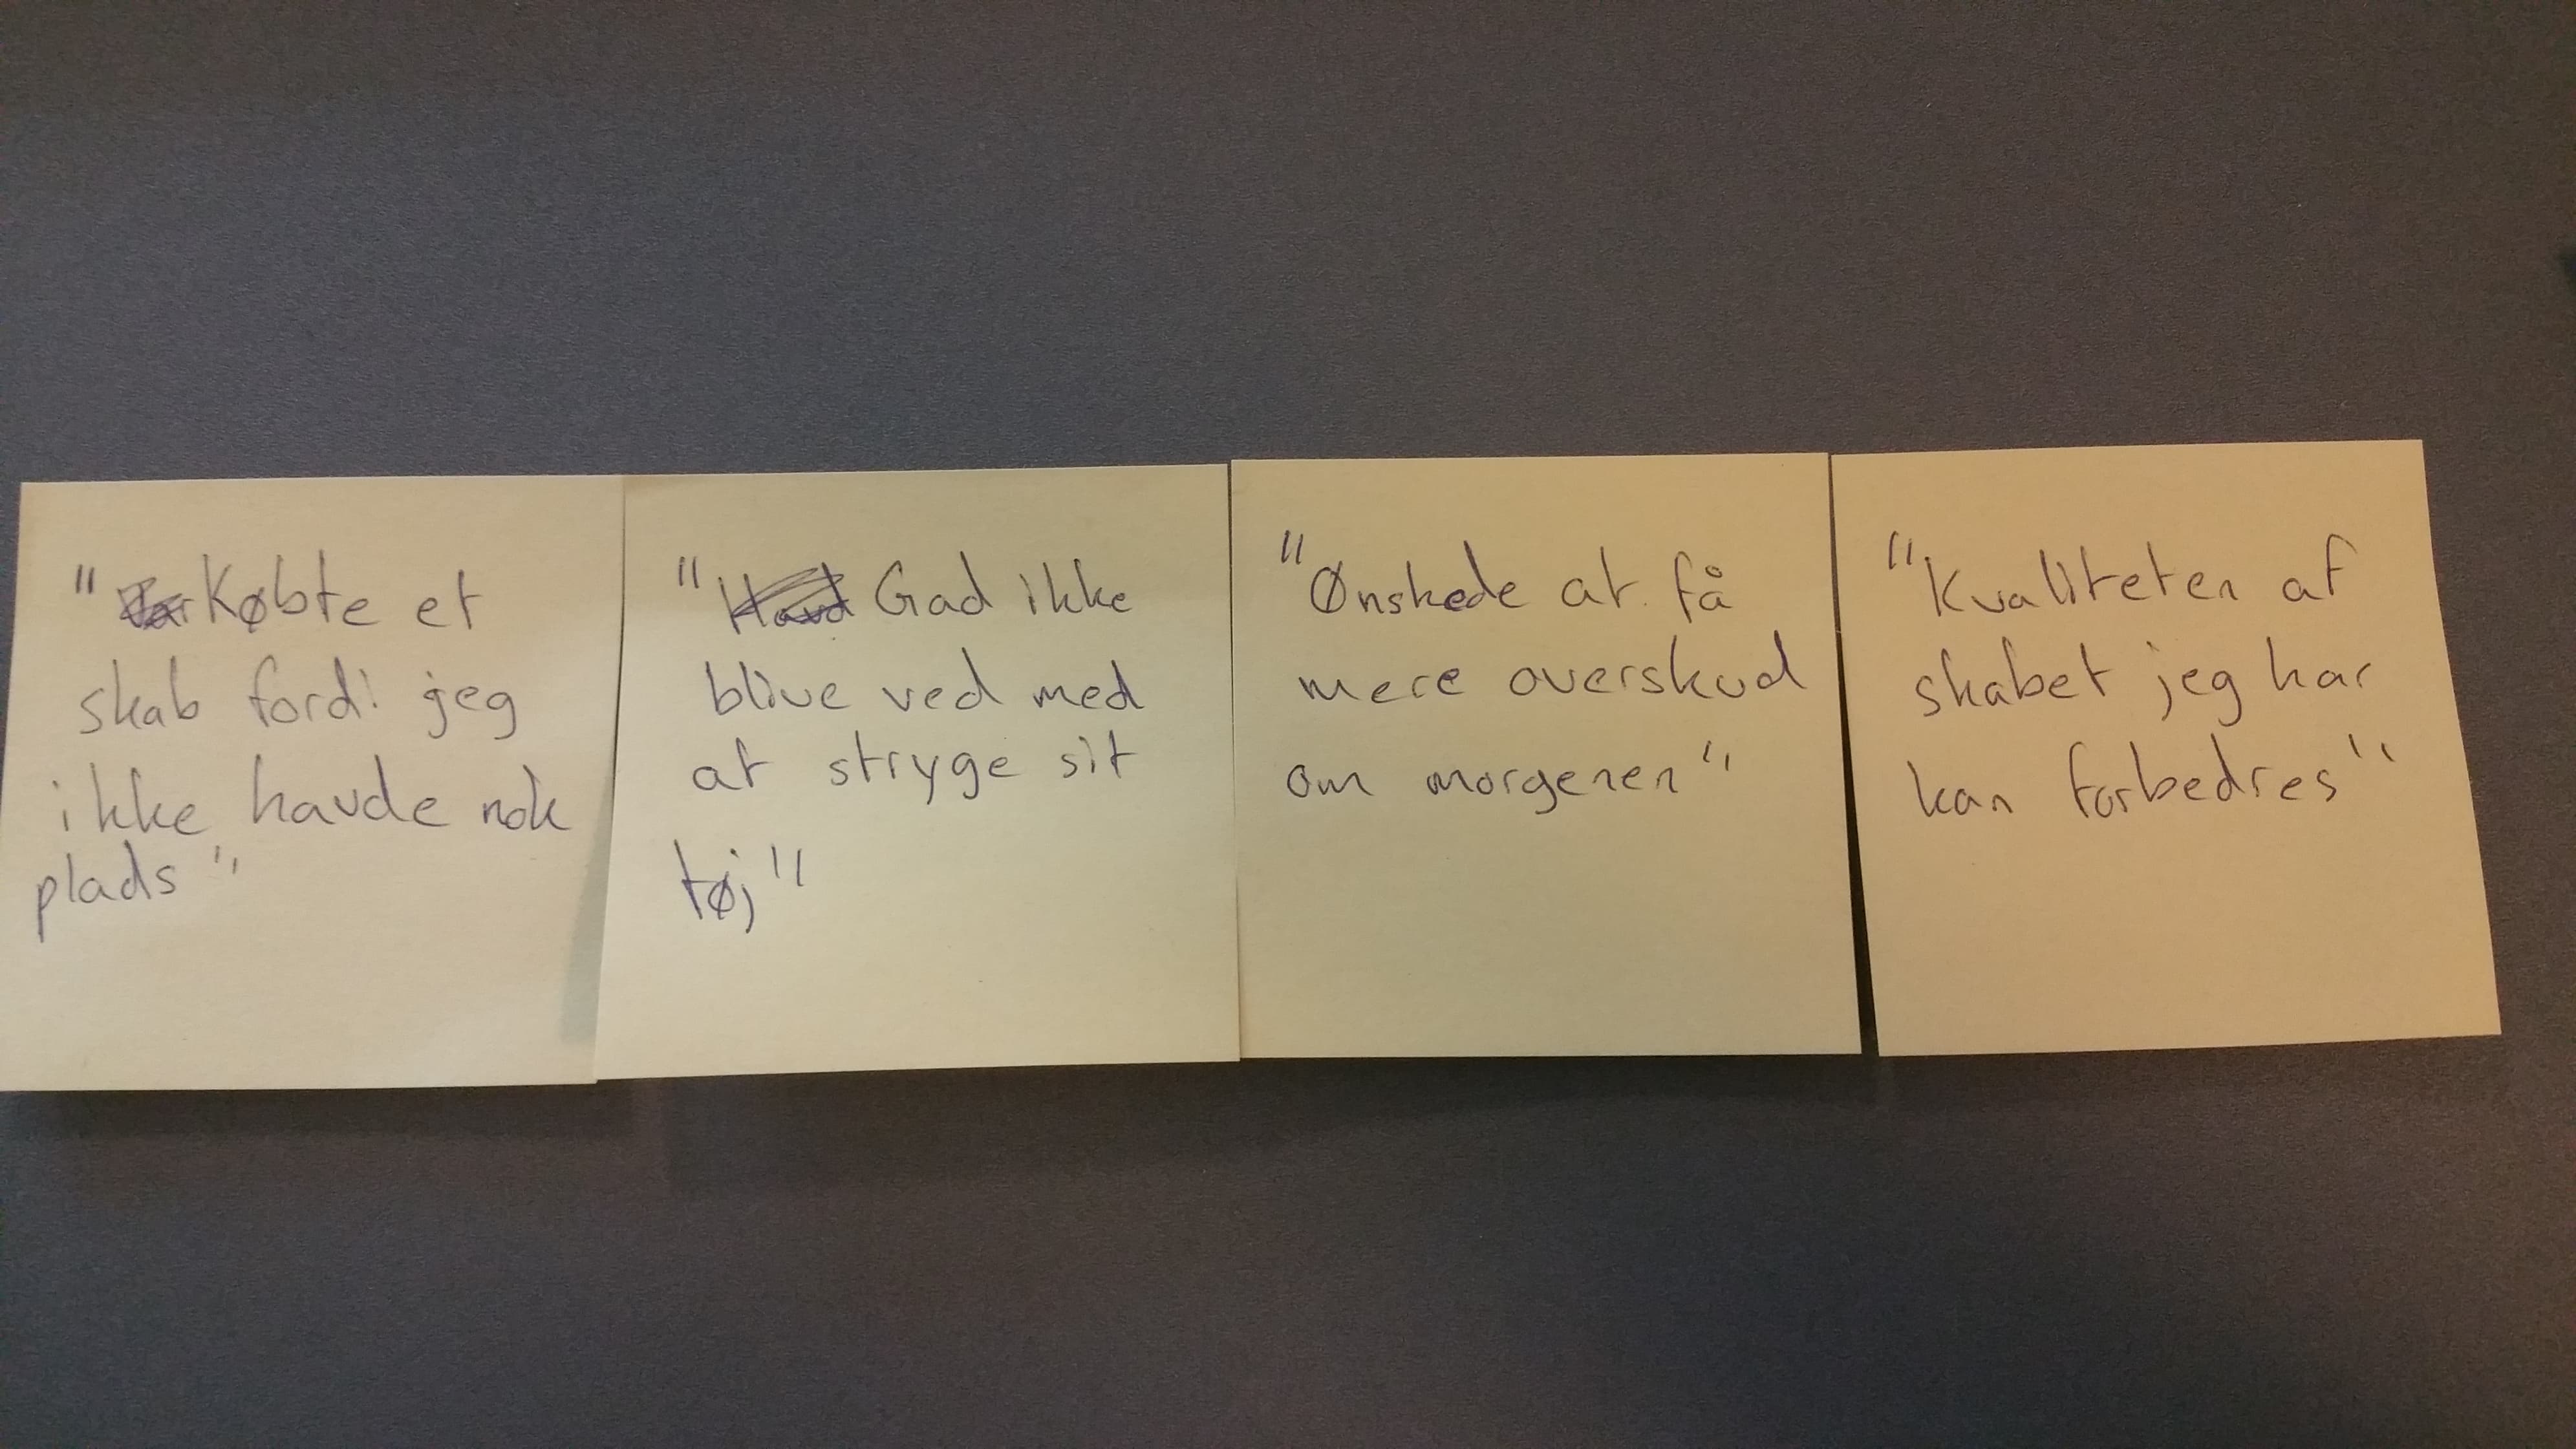 "Købte et
skab fordi jeg
ikke havde nok
plads"
"Gad ikke
blive ved med
at stryge sit
tøj"
"Ønskede at få
mere overskud
om morgenen"
"Kvaliteten af
skabet jeg har
kan forbedres"